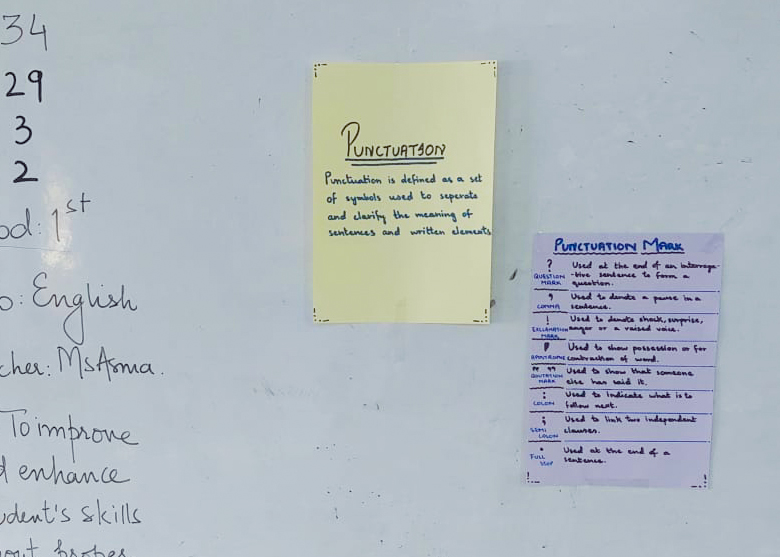 34
29
3
2
od: 1st
o: English
cher: Ms Asma.
To improve
d enhance
udent's skills
PUNCTUATION
Punctuation is defined as a set
of symbols used to seperate
and clarify the meaning of
sentences and written elements
PUNCTUATION MARK
? QUESTION MARK
Used at the end of an interroga-
-tive sentence to form a
question.
, COMMA
Used to denote a pause in a
sentence.
! EXCLAMATION MARK
Used to denote shock, surprise,
anger or a raised voice.
' APOSTROPHE
Used to show possession or for
contraction of word.
“ ” QUOTATION MARK
Used to show that someone
else has said it.
: COLON
Used to Indicate what is to
follow next.
; SEMI COLON
Used to link two independent
clauses.
. FULL STOP
Used at the end of a
sentence.